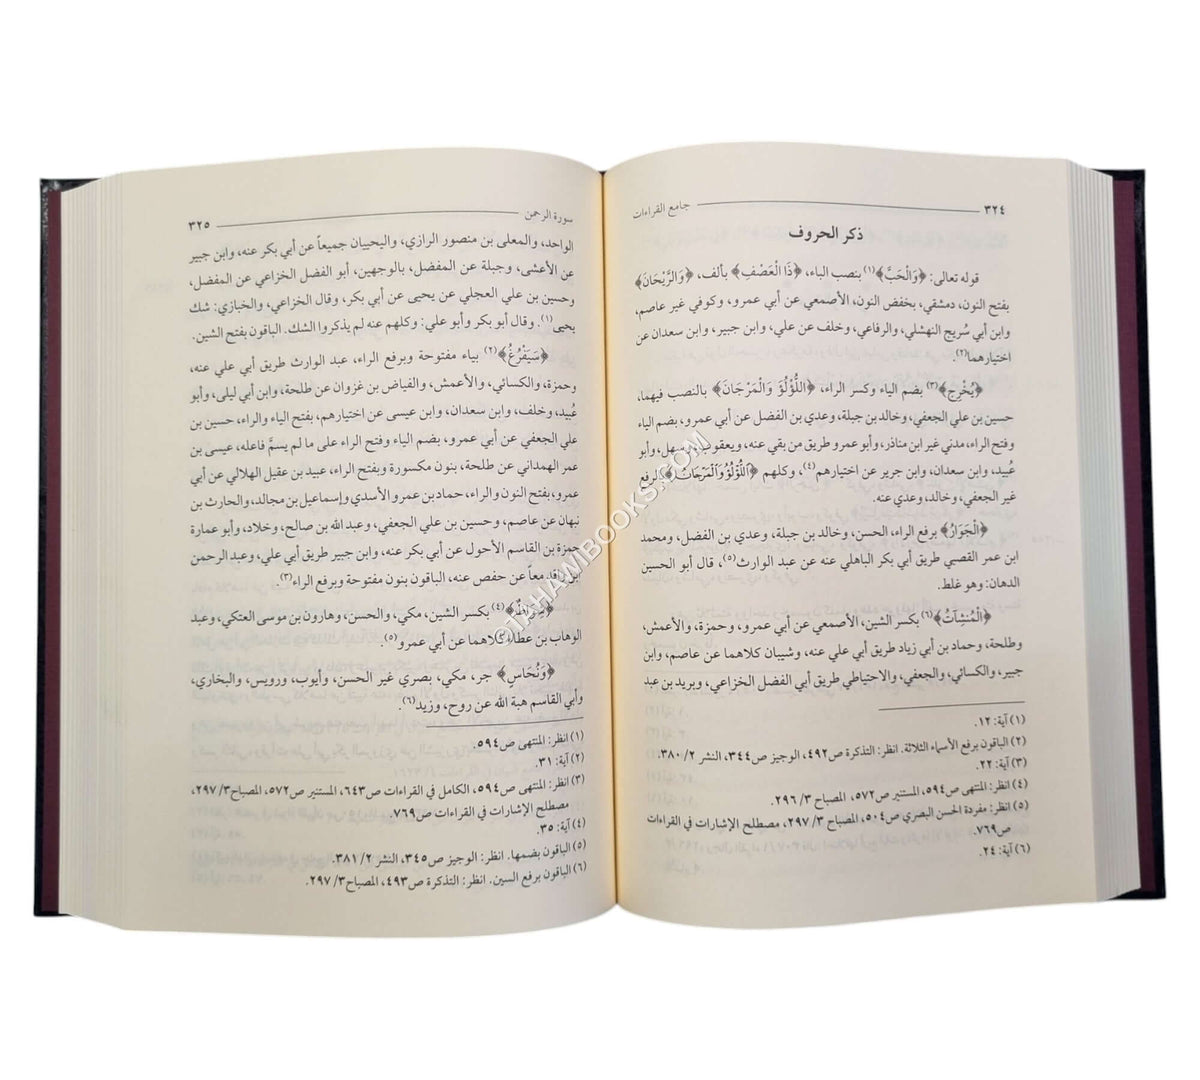 ٣٢٤ جامع القراءات
ذكر الحروف
قوله تعالى: ﴿وَالْحَبَّ﴾(١) بنصب الباء، ﴿ذَا الْعَصْفِ﴾ بألف، ﴿وَالرَّيْحَانَ﴾
بفتح النون، دمشقي، بخفض النون، الأصمعي عن أبي عمرو، وكوفي غير عاصم،
وابن أبي سُريج النهشلي، والرفاعي، وخلف عن علي، وابن جبير، وابن سعدان عن
اختيارهما(٢).
﴿يُخْرِج﴾(٣) بضم الياء وكسر الراء، ﴿اللُّؤْلُؤَ وَالْمَرْجَانَ﴾ بالنصب فيهما،
حسين بن علي الجعفي، وخالد بن جبلة، وعدي بن الفضل عن أبي عمرو، بضم الياء
وفتح الراء، مدني غير ابن مناذر، وأبو عمرو طريق من بقي عنه، ويعقوب، وسهل، وأبو
عُبيد، وابن سعدان، وابن جرير عن اختيارهم(٤)، وكلهم ﴿اللُّؤْلُؤُ وَالْمَرْجَانُ﴾ بالرفع
غير الجعفي، وخالد، وعدي عنه.
﴿الْجَوَارُ﴾ برفع الراء، الحسن، وخالد بن جبلة، وعدي بن الفضل، ومحمد
ابن عمر القصبي طريق أبي بكر الباهلي عنه عن عبد الوارث(٥)، قال أبو الحسين
الدهان: وهو غلط.
﴿الْمُنشِآتُ﴾(٦) بكسر الشين، الأصمعي عن أبي عمرو، وحمزة، والأعمش،
وطلحة، وحماد بن أبي زياد طريق أبي علي عنه، وشيبان كلاهما عن عاصم، وابن
جبير، والكسائي، والجعفي، والاحتياطي طريق أبي الفضل الخزاعي، وبريد بن عبد
(١) آية: ١٢.
(٢) الباقون برفع الأسياء الثلاثة. انظر: التذكرة ص٤٩٢، الوجيز ص٣٤٤، النشر ٢/ ٣٨٠.
(٣) آية: ٢٢.
(٤) انظر: المنتهى ص٥٩٤، المستنير ص٥٧٢، المصباح ٣/ ٢٩٦.
(٥) انظر: مفردة الحسن البصري ص٥٠٤، المصباح ٣/ ٢٩٧، مصطلح الإشارات في القراءات
ص٧٦٩.
(٦) آية: ٢٤.
سورة الرحمن ٣٢٥
الواحد، والمعلى بن منصور الرازي، واليحييان جميعاً عن أبي بكر عنه، وابن جبير
عن الأعشى، وجبلة عن المفضل، بالوجهين، أبو الفضل الخزاعي عن المفضل،
وحسين بن علي العجلي عن يحيى عن أبي بكر، وقال الخزاعي، والخبازي: شك
يحيى(١). وقال أبو بكر وأبو علي: وكلهم عنه لم يذكروا الشك. الباقون بفتح الشين.
﴿سَيَفْرُغُ﴾(٢) بياء مفتوحة وبرفع الراء، عبد الوارث طريق أبي علي عنه،
وحمزة، والكسائي، والأعمش، والفياض بن غزوان عن طلحة، وابن أبي ليلى، وأبو
عُبيد، وخلف، وابن سعدان، وابن عيسى عن اختيارهم، بفتح الياء والراء، حسين بن
علي الجعفي عن أبي عمرو، بضم الياء وفتح الراء على ما لم يسمَّ فاعله، عيسى بن
عمر الهمداني عن طلحة، بنون مكسورة وبفتح الراء، عبيد بن عقيل الهلالي عن أبي
عمرو، بفتح النون والراء، حماد بن عمرو الأسدي وإسماعيل بن مجالد، والحارث بن
نبهان عن عاصم، وحسين بن علي الجعفي، وعبد الله بن صالح، وخلاد، وأبو عمارة
حمزة بن القاسم الأحول عن أبي بكر عنه، وابن جبير طريق أبي علي، وعبد الرحمن
ابن قدمعاً عن حفص عنه، الباقون بنون مفتوحة وبرفع الراء(٣).
﴿شِوَاظٌ﴾(٤) بكسر الشين، مكي، والحسن، وهارون بن موسى العتكي، وعبد
الوهاب بن عطاء كلاهما عن أبي عمرو(٥).
﴿وَنُحَاسٍ﴾ جر، مكي، بصري غير الحسن، وأيوب، ورويس، والبخاري،
وأبي القاسم هبة الله عن روح، وزيد(٦).
(١) انظر: المنتهى ص٥٩٤.
(٢) آية: ٣١.
(٣) انظر: المنتهى ص٥٩٤، الكامل في القراءات ص٦٤٣، المستنير ص٥٧٢، المصباح ٣/ ٢٩٧،
مصطلح الإشارات في القراءات ص٧٦٩.
(٤) آية: ٣٥.
(٥) الباقون بضمها. انظر: الوجيز ص٣٤٥، النشر ٢/ ٣٨١.
(٦) الباقون برفع السين. انظر: التذكرة ص٤٩٣، المصباح ٣/ ٢٩٧.
TAHAWIBOOKS.COM